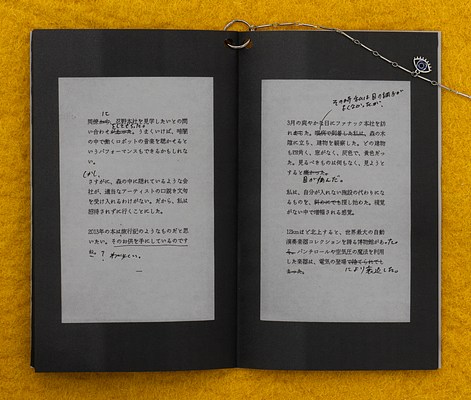 に
問題
忍野本社を見学したいとの問
い合わせ
うまくいけば、暗闇
の中で働くロボットの音楽を聴かせるとい
うパフォーマンスもできるかもしれな
い。
しかし、
さすがに、森の中に隠れているような会
社が、適当なアーティストの口説き文句
を受け入れるわけがない。だから、私は
招待されずに行くことにした。
2013年の本は旅行記のようなものだと思
いたい。その台本を手にしているのです
ね。?
その時私は目の調子が
よくなかったが、
3月の爽やかな日にファナック本社を訪
れ
森の木
陰に立ち、建物を観察した。どの建物
も四角く、窓がなく、灰色で、黄色だっ
た。見るべきものは何もなく、見ようと
すると
目が痛んだ。
私は、自分が入れない施設の代わりにな
るものを、
探し始めた。視覚
がない中で増幅される感覚。
13kmほど北上すると、世界最大の自動
演奏楽器コレクションを誇る博物館があった。
パンチロールや空気圧の魔法を利用
した楽器は、電気の登場
により衰退した。